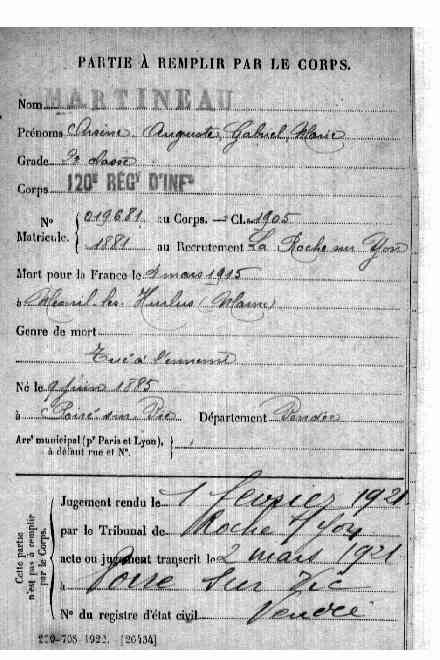 PARTIE À REMPLIR PAR LE CORPS.
Nom MARTINEAU
Prénoms Arsène Auguste, Gabriel, Marie
Grade 2e classe
Corps 120E REGt D'INFie
No 019681 au Corps. — Cl. 1905
Matricule. 1881 au Recrutement La Roche sur Yon
Mort pour la France le 4 mars 1915
à Mesnil-les-Hurlus (Marne)
Genre de mort
Tué à l'ennemi
Né le 9 juin 1885
à Poiré-sur-Vie Département Vendée
Arrt municipal (pr Paris et Lyon),
à défaut rue et No.
Cette partie
n'est pas à remplir
par le Corps.
Jugement rendu le 1 février 1921
par le Tribunal de Roche s/ Yon
acte ou jugement transcrit le 2 mars 1921
à Poiré sur Vie
Vendée
No du registre d'état civil
708 1922. [26434]